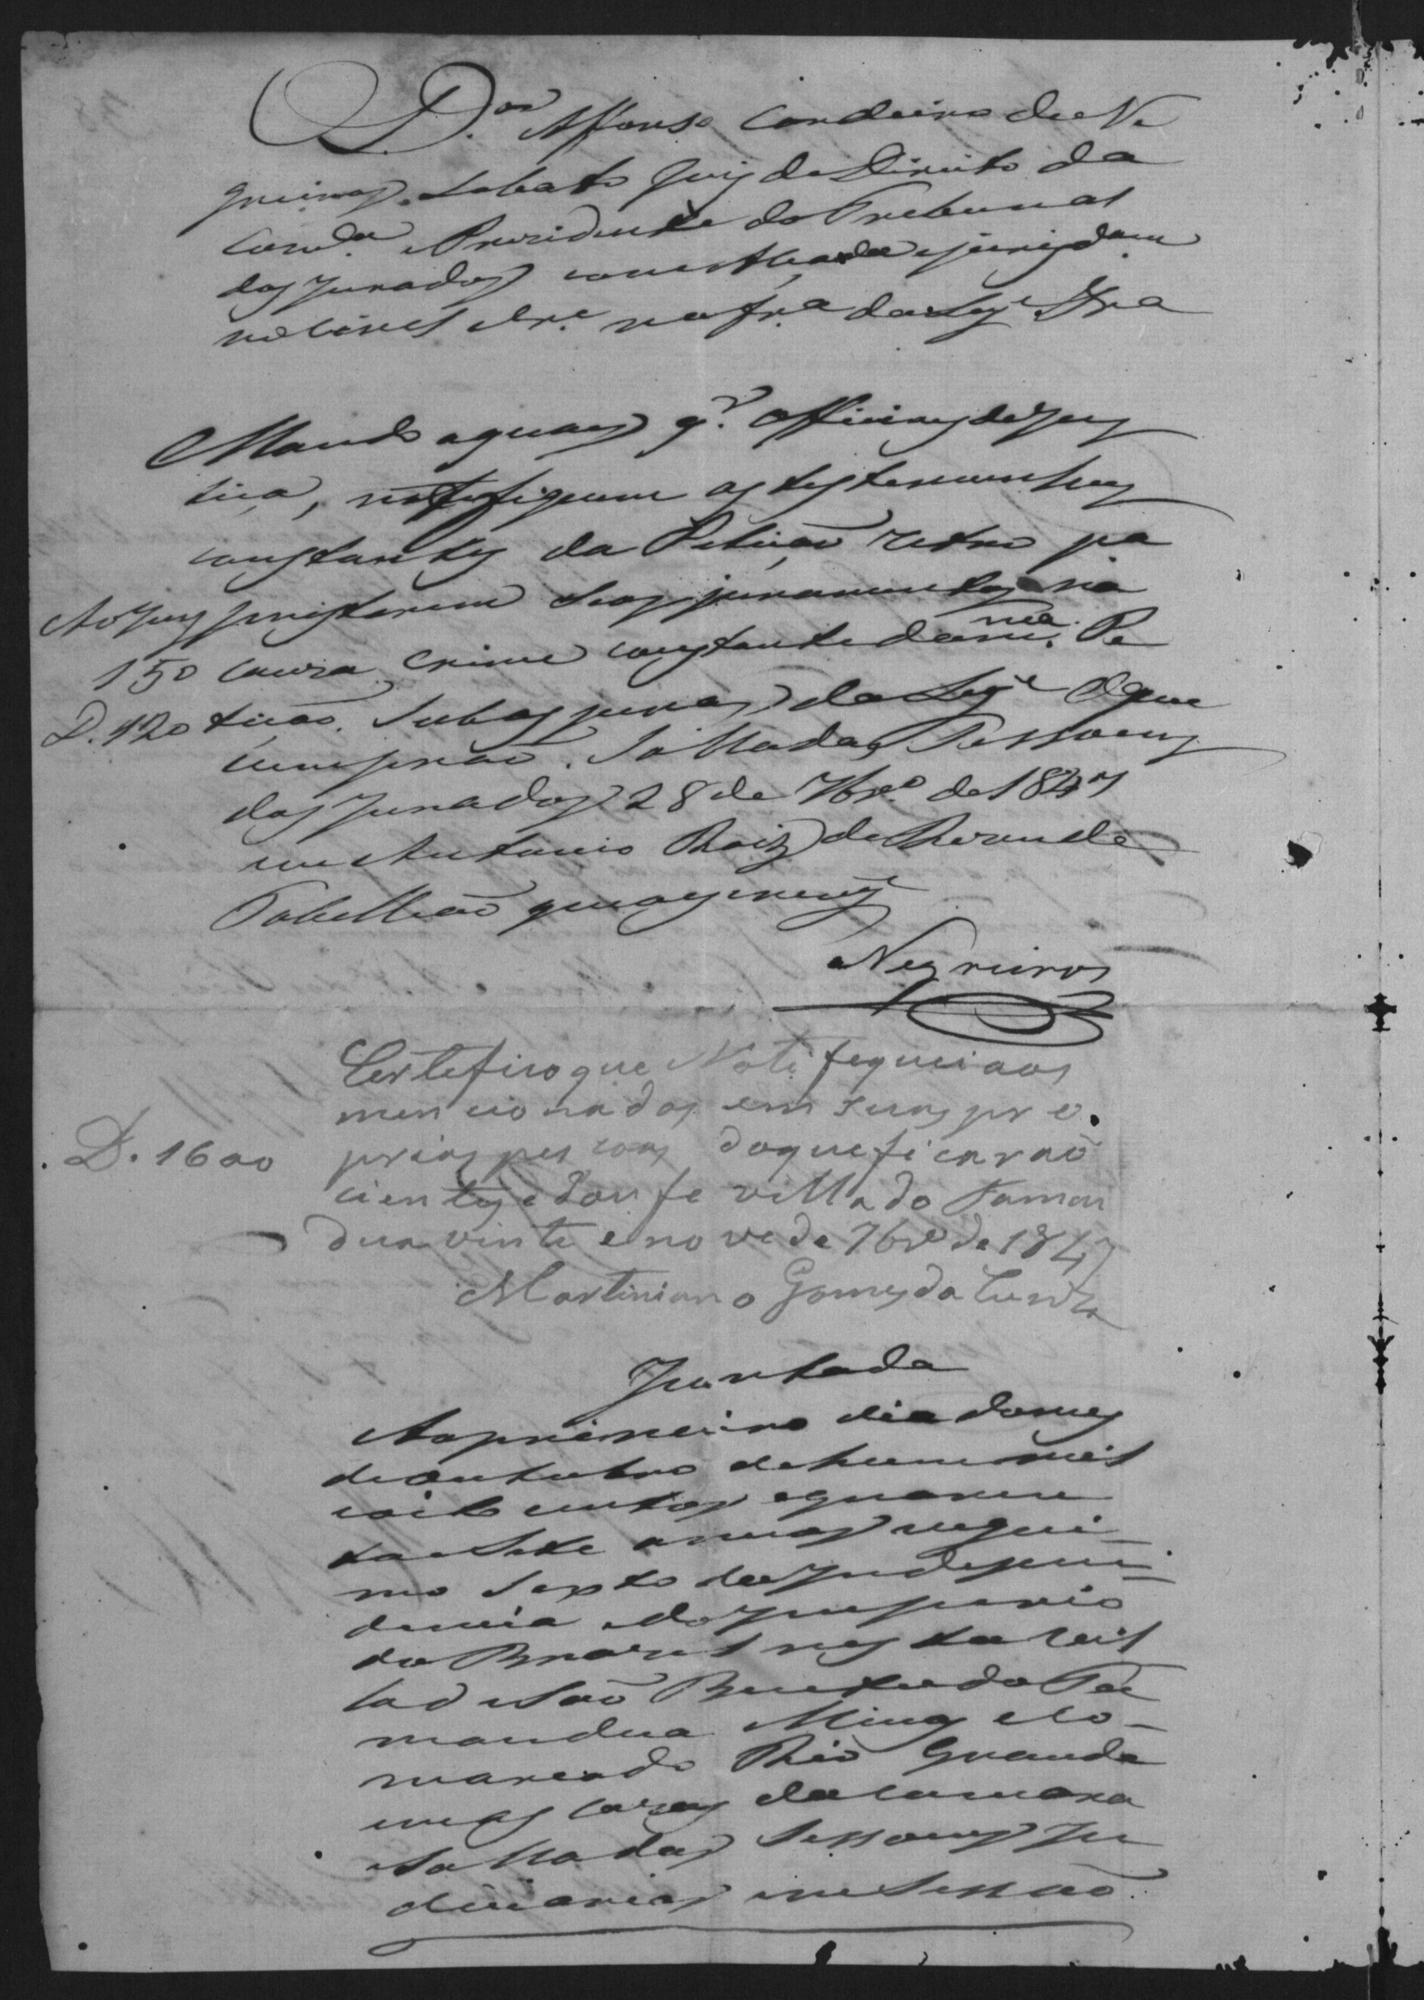 D.or Affonso Cordeiro de Ne
greiros Lobato Juiz de Direito da
Com.da e Prezidente do Tribunal
dos Jurados com Alçada e jurisd.am
no Civel e Cr.e na f.ra da Ley &ra
Mando aquaes q.r Officiaes de Jus
tiça, notefiquem as testemunhas
constantes da Petição retro pa
Ao Juiz prestarem seos juramentos na
150 cauza crime constante da m.ma Pe
D. 120 tição. Sub as penas da Ley O que
cumprão. Salla das Sessoens
dos Jurados 28 de 7br.o de 1847
eu Antonio Roiz de
Tabellião que a escrevy
Negreiros
Certefico que Notefequei aos
mencionados em suas pro
D. 1600 prias pessoas do que ficarão
cientes e dou fe villa do Taman
dua vinte e nove de 7br.o de 1847
Martiniano Gomes da Cunha
Juntada
Ao primeiro dia do mes
de outubro de hum mil
oito centos e quaren
ta e Sete annos vegeci-
mo Sexto da Indepen-
dencia e do Imperio
do Brazil nesta Vil
la de São Bento do Ta
mandua Minas e Co-
marca do Rio Grande
em as cazas da Camara
Salla das Sessoens Ju
diciarias em Sessão.